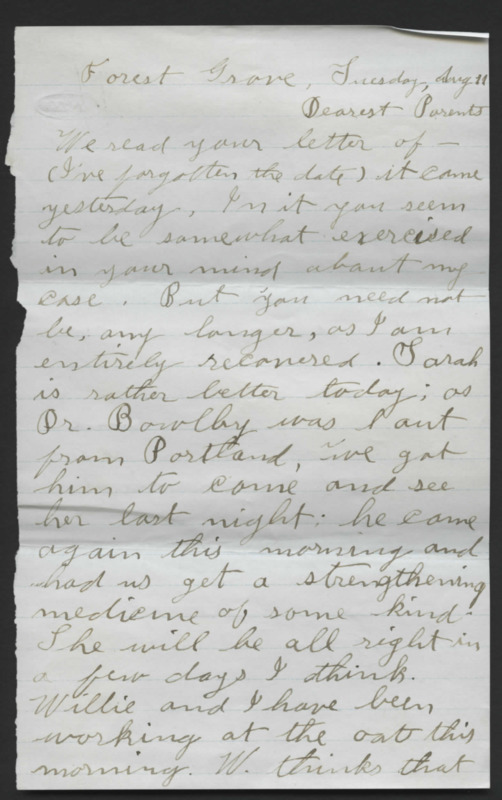 Forest Grove, Tuesday, Aug 11
Dearest Parents
We read your letter of —
(I've forgotten the date) it came
yesterday, In it you seem
to be somewhat exercised
in your mind about my
case. But you need not
be, any longer, as I am
entirely recovered. Sarah
is rather better today; as
Dr. Bowlby was out
from Portland, we got
him to come and see
her last night: he came
again this morning and
had us get a strengthening
medicine of some kind.
She will be all right in
a few days I think.
Willie and I have been
working at the oats this
morning. W. thinks that